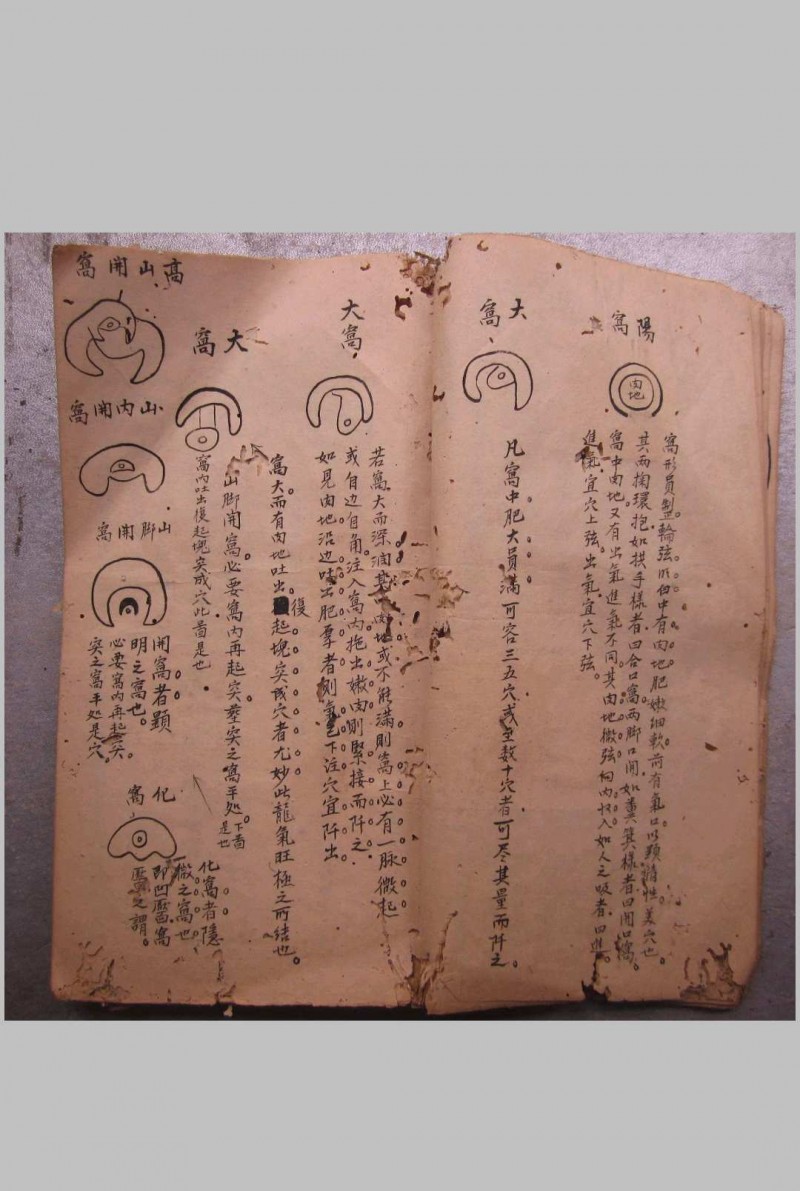 陽窩
肉地
窩形員整輪弦明白中有肉地肥嫩細軟前有氣口以顯情性美穴也
其兩掬環抱如拱手樣者曰合口窩兩脚口開如糞箕樣者曰開口窩
窩中肉地又有出氣進氣不同其肉地微弦向內收入如人之吸者曰進
進氣宜穴上弦出氣宜穴下弦。
大窩
凡窩中肥大員滿可容三五穴或至数十穴者可尽其量而阡之。
大窩
若窩大而深濶其肉地或不能滿則窩上必有一脉微起
或自边自角注入窩內拖出嫩肉則緊接而阡之
如見肉地沿边吐出肥厚者則氣下注穴宜阡出
大窩
窩大而有肉地吐出復起塊突成穴者尤妙此龍氣旺極之所結也
山脚開窩必要窩內再起突突之窩平处下啚是也
窩內吐出復起塊突成穴此啚是也
高山開窩
山內開窩
山脚開窩
開窩者顯
明之窩也。
必要窩內再起突
突之窩平处是穴
化窩
化窩者隱
微之窩也
即凹窩
之謂。